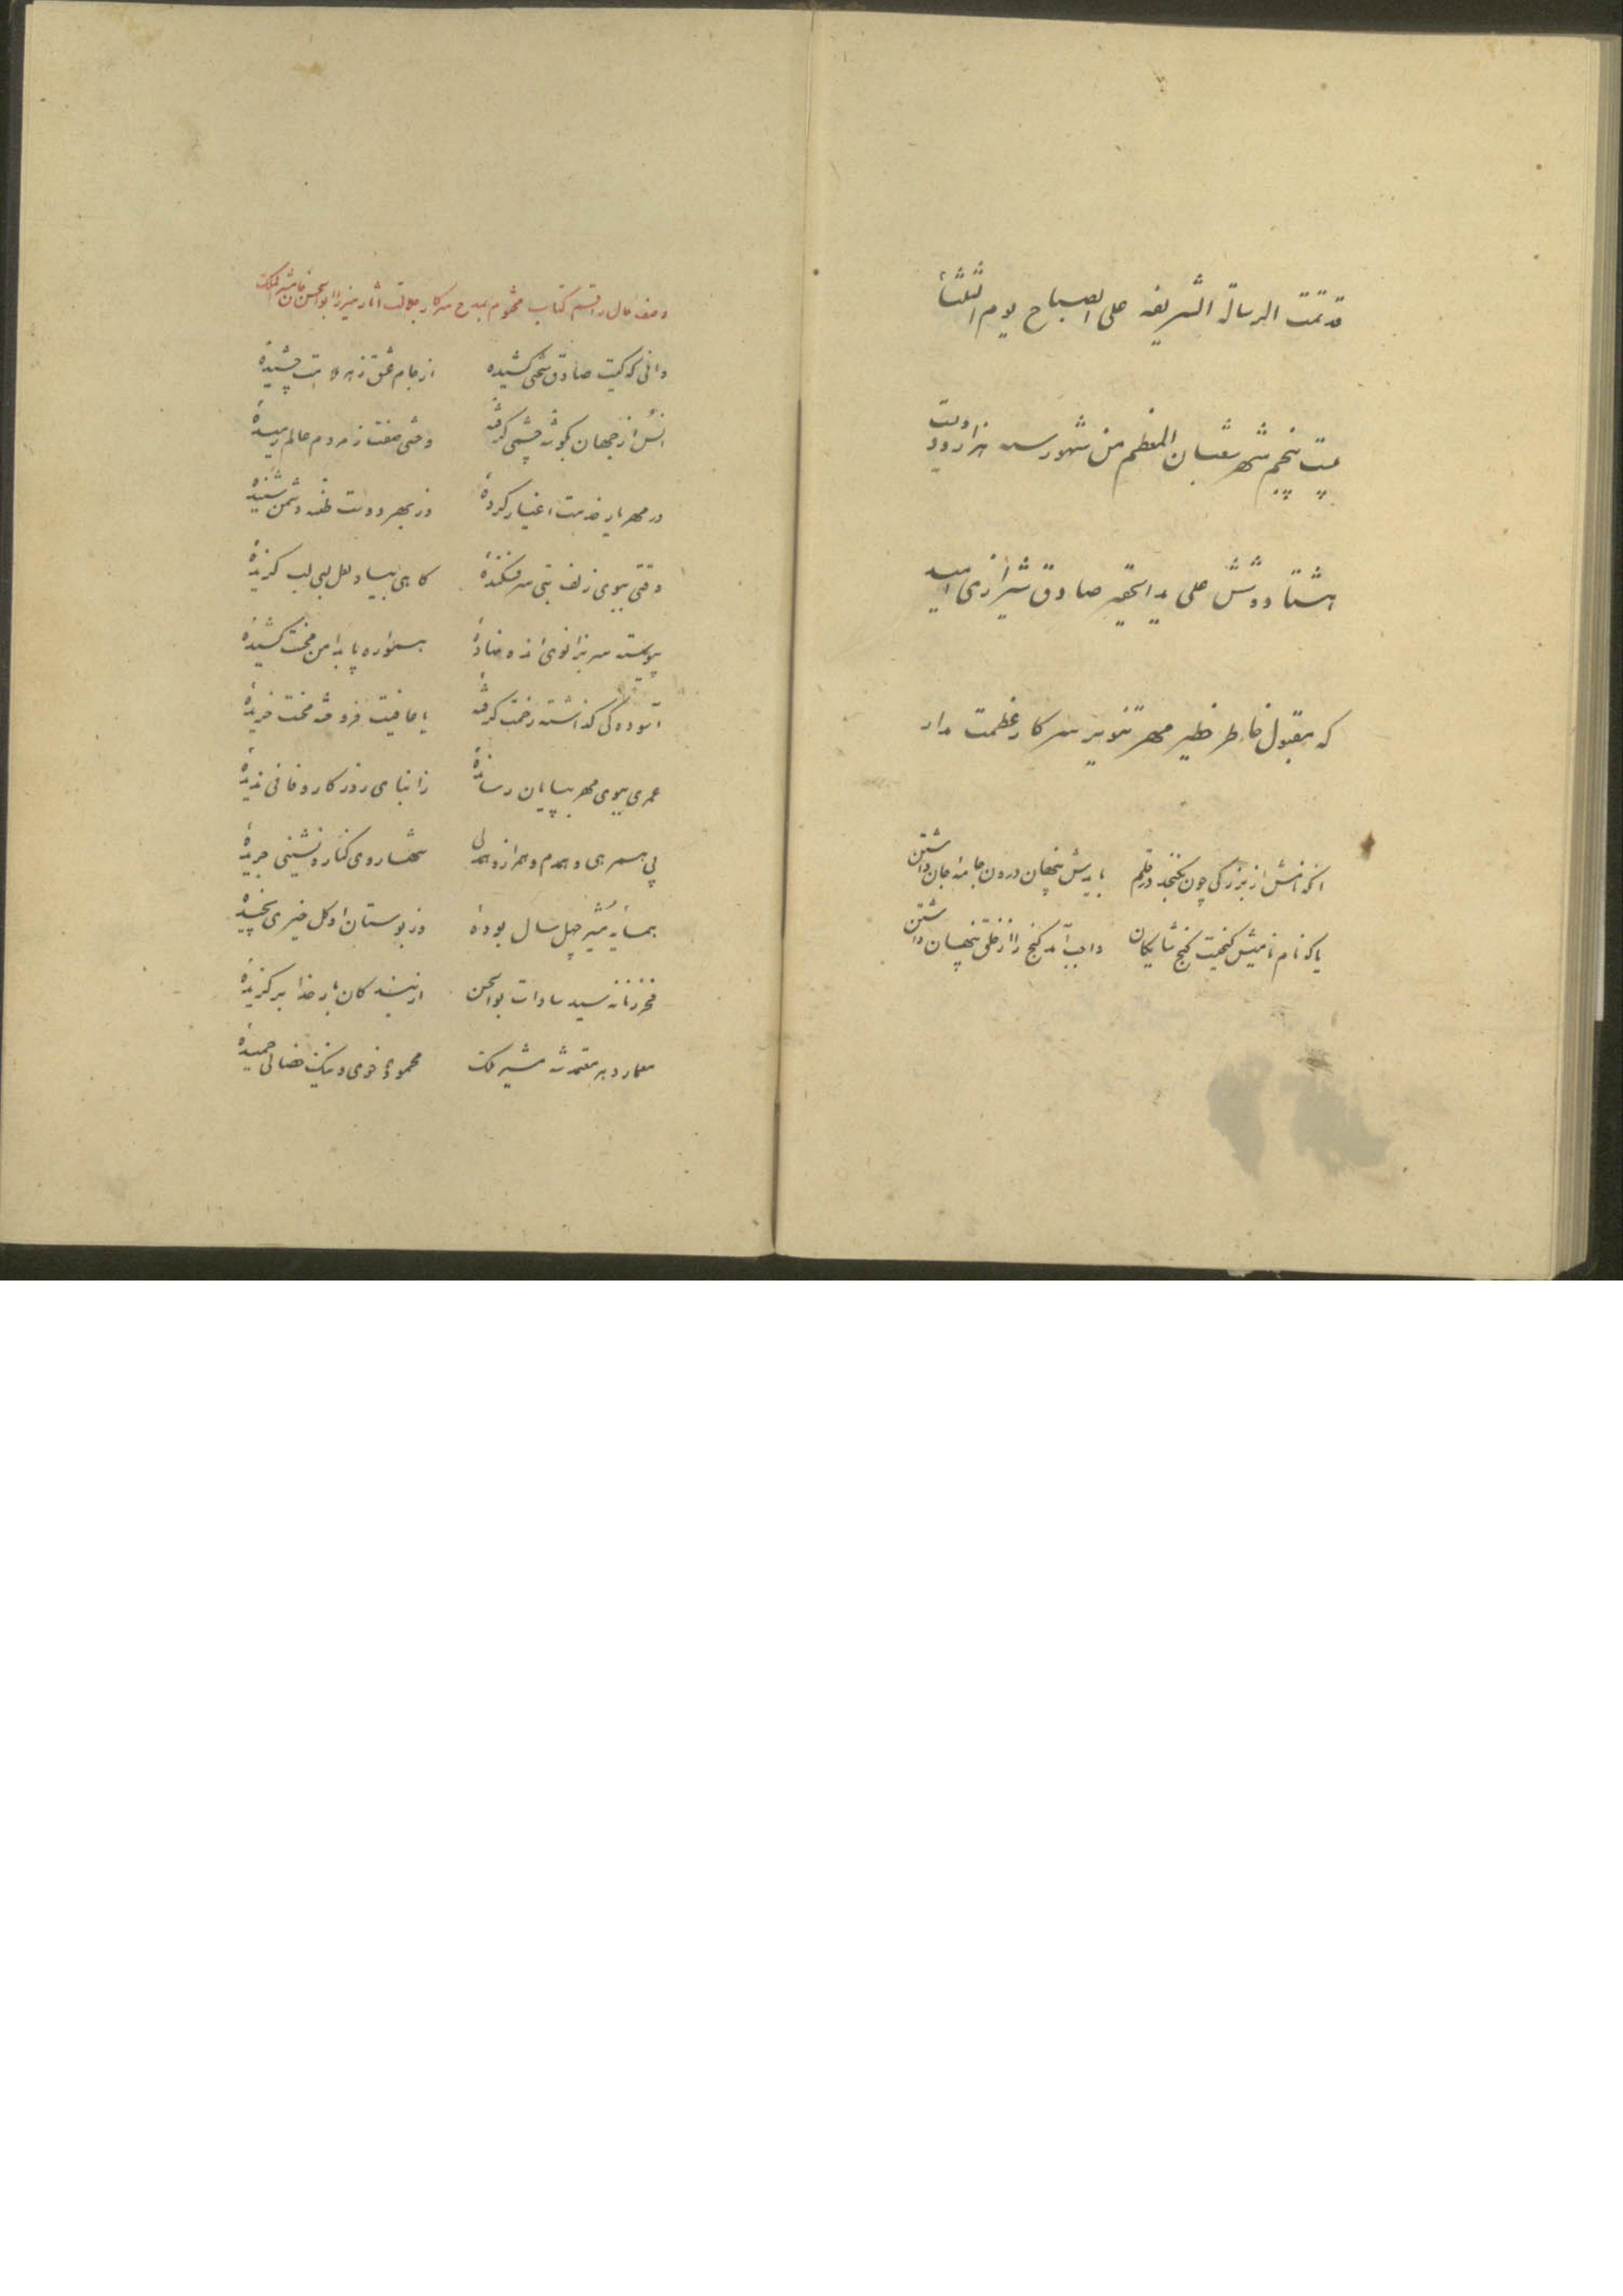 قد تمت الرسالة الشریفه علی الصباح یوم الثلثا
بیست پنجم شهر شعبان المعظم من شهور سنه هزار و دویست
هشتاد و شش علی ید الحقیر صادق شیرازی امید
که مقبول خاطر خطیر مهر تنویر سرکار عظمت مدار
انکه نامش از بزرگی چون نگنجد در قلم بایدش پنهان درون جامه جان داشتن
یا که نام نامیش گنجیت گنج شایکان واجب آمد گنج را از خلق پنهان داشتن
وصف حال راقم کتاب مختوم بمدح سرکار جلالت اثار میرزا ابوالحسن خان مشیر الملک
دانی که کیست صادق سختی کشیدهٔ از جام عشق زهر چشیدهٔ
انس از جهان بگوشه چشمی گرفتهٔ وحشی صفت ز مردم عالم رمیدهٔ
در مهر یار خدمت اغیار کردهٔ وز بهر دوست طعنه دشمن شنیدهٔ
وقتی ببوی زلف بتی سر فکندهٔ گاهی بیاد لعل لبی لب گزیدهٔ
پیوسته سر بزانوی اندوه نهادهٔ همواره پا بدامن محنت کشیدهٔ
آسوده‌گی گذاشته زحمت گرفتهٔ یا عافیت فروخته محنت خریدهٔ
عمری ببوی مهر بپایان رساندهٔ زابنای روزگار وفائی ندیدهٔ
بی همسری و همدم و همراز و همدلی تنها روی کناره نشینی جریدهٔ
همسایه مشیر چهل سال بودهٔ وز بوستان او گل خیری نچیدهٔ
فخر زمانه سید سادات بوالحسن از بندگان بار خدا برگزیدهٔ
معمار دبر معتمد شه مشیر ملک محمود خوی و نیک خصالی حمیدهٔ